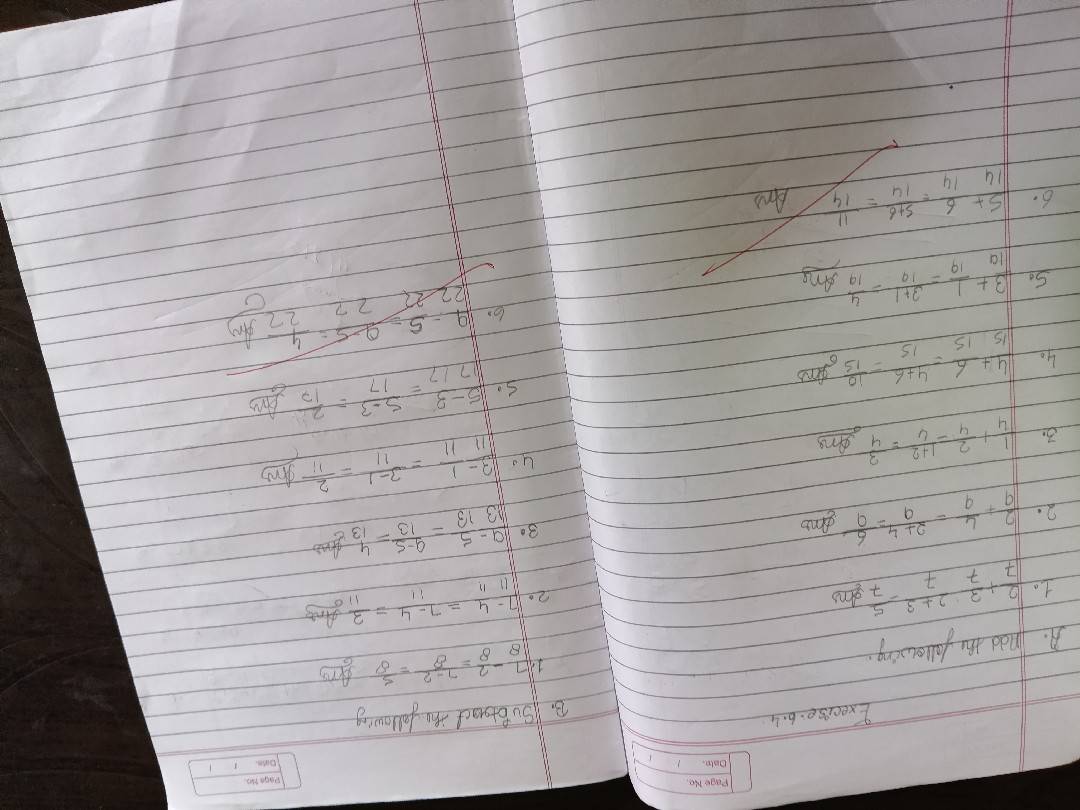 Page No.
Date. / /
Exercise-6.4.
A. Add the following.
1. 2/7 + 3/7 = 2+3/7 = 5/7 Ans
2. 2/9 + 4/9 = 2+4/9 = 6/9 Ans
3. 1/4 + 2/4 = 1+2/4 = 3/4 Ans
4. 4/15 + 6/15 = 4+6/15 = 10/15 Ans
5. 3/19 + 1/19 = 3+1/19 = 4/19 Ans
6. 5/14 + 6/14 = 5+6/14 = 11/14 Ans
Page No.
Date. / /
B. Subtract the following
1. 7/8 - 2/8 = 7-2/8 = 5/8 Ans
2. 7/11 - 4/11 = 7-4/11 = 3/11 Ans
3. 9/13 - 5/13 = 9-5/13 = 4/13 Ans
4. 3/11 - 1/11 = 3-1/11 = 2/11 Ans
5. 5/17 - 3/17 = 5-3/17 = 2/17 Ans
6. 9/22 - 5/22 = 9-5/22 = 4/22 Ans